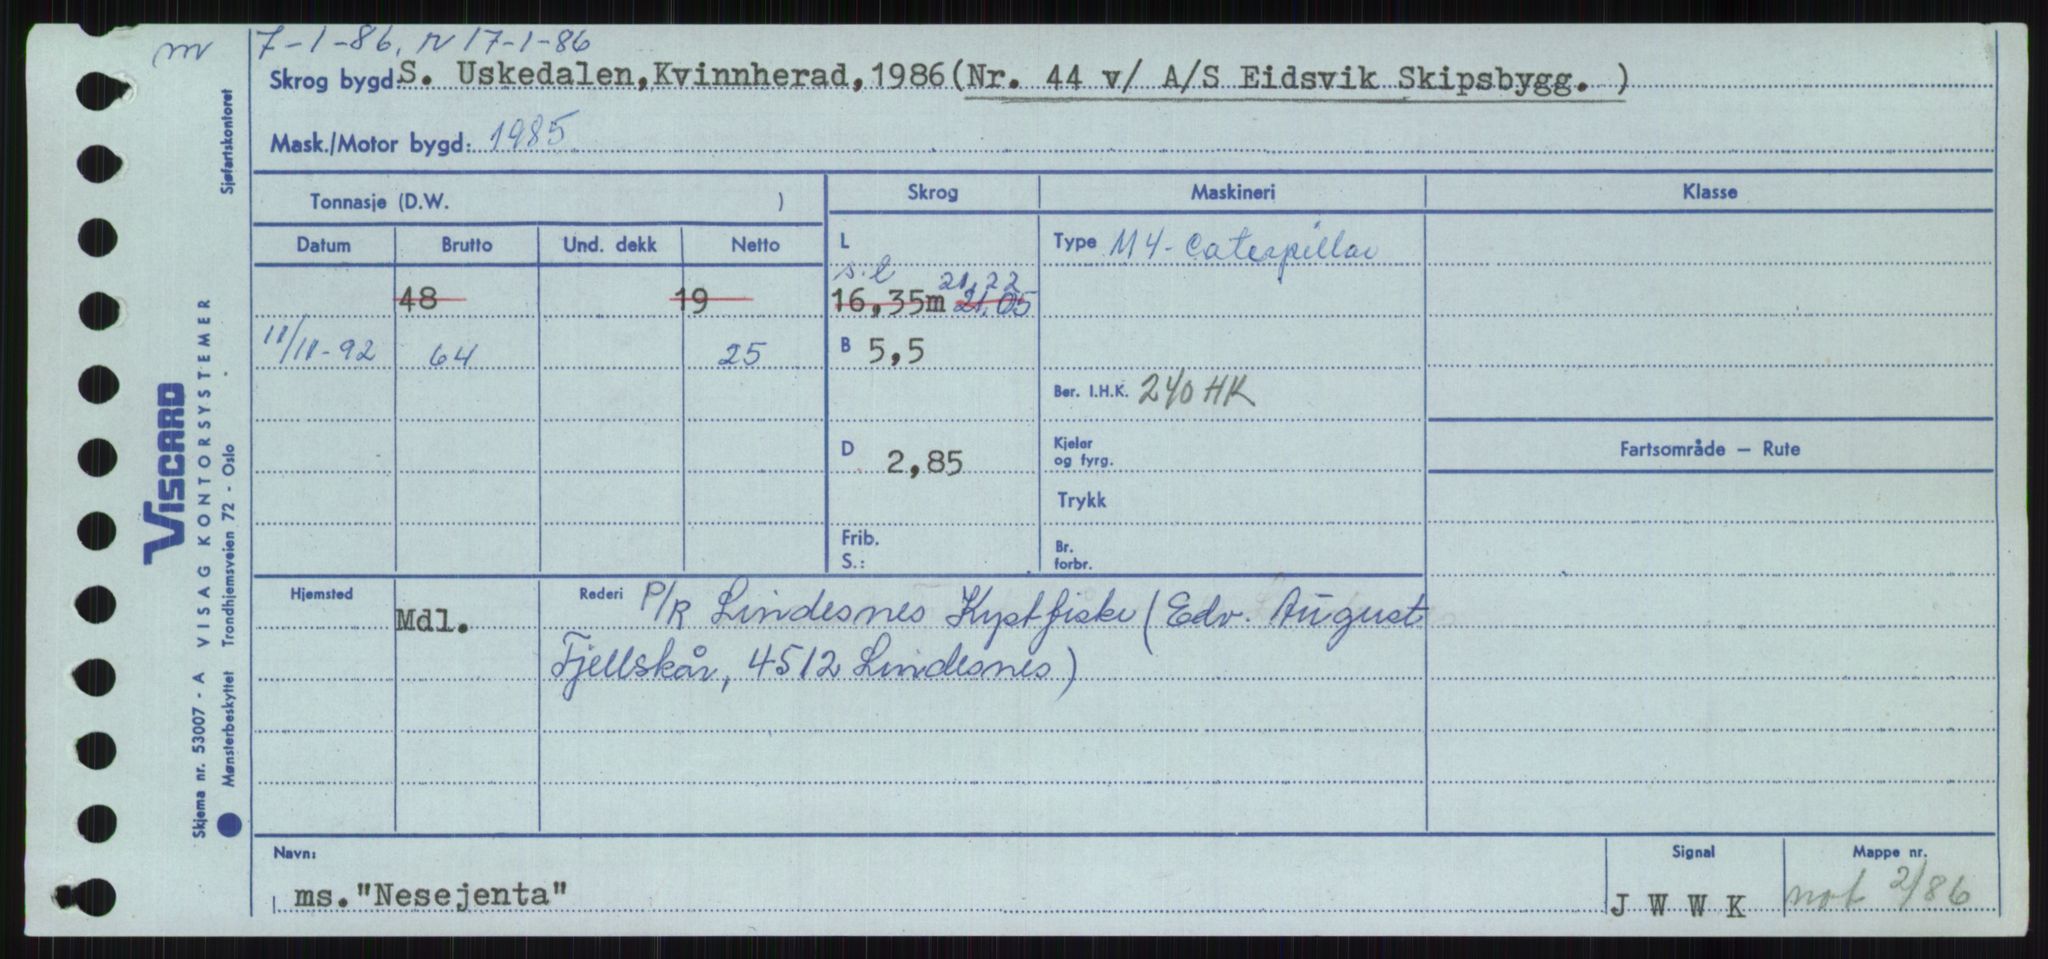 m 7-1-86, r 17-1-86
Skrog bygd: S. Uskedalen, Kvinnherad, 1986 (Nr. 44 v/ A/S Eidsvik Skipsbygg. )
Mask./Motor bygd: 1985
Tonnasje (D.W. ) Skrog Maskineri Klasse
Datum Brutto Und. dekk Netto L Type M4-Caterpillar
s.l 21,22
48 19 16,35m 21,05
11/11-92 64 25 B 5,5
Ber. I.H.K. 240 HK
D 2,85 Kjeler og fyrg. Fartsområde — Rute
Trykk
Frib. Br.
S.: forbr.
Hjemsted Mdl. Rederi P/R Lindesnes Kystfiske (Edv. August
Fjellskår, 4512 Lindesnes)
Navn: Signal Mappe nr.
ms. "Nesejenta" J W W K not 2/86
Sjøfartskontoret
VISCARD
Skjema nr. 53007 - A VISAG KONTORSYSTEMER
Mønsterbeskyttet Trondhjemsveien 72 - Oslo